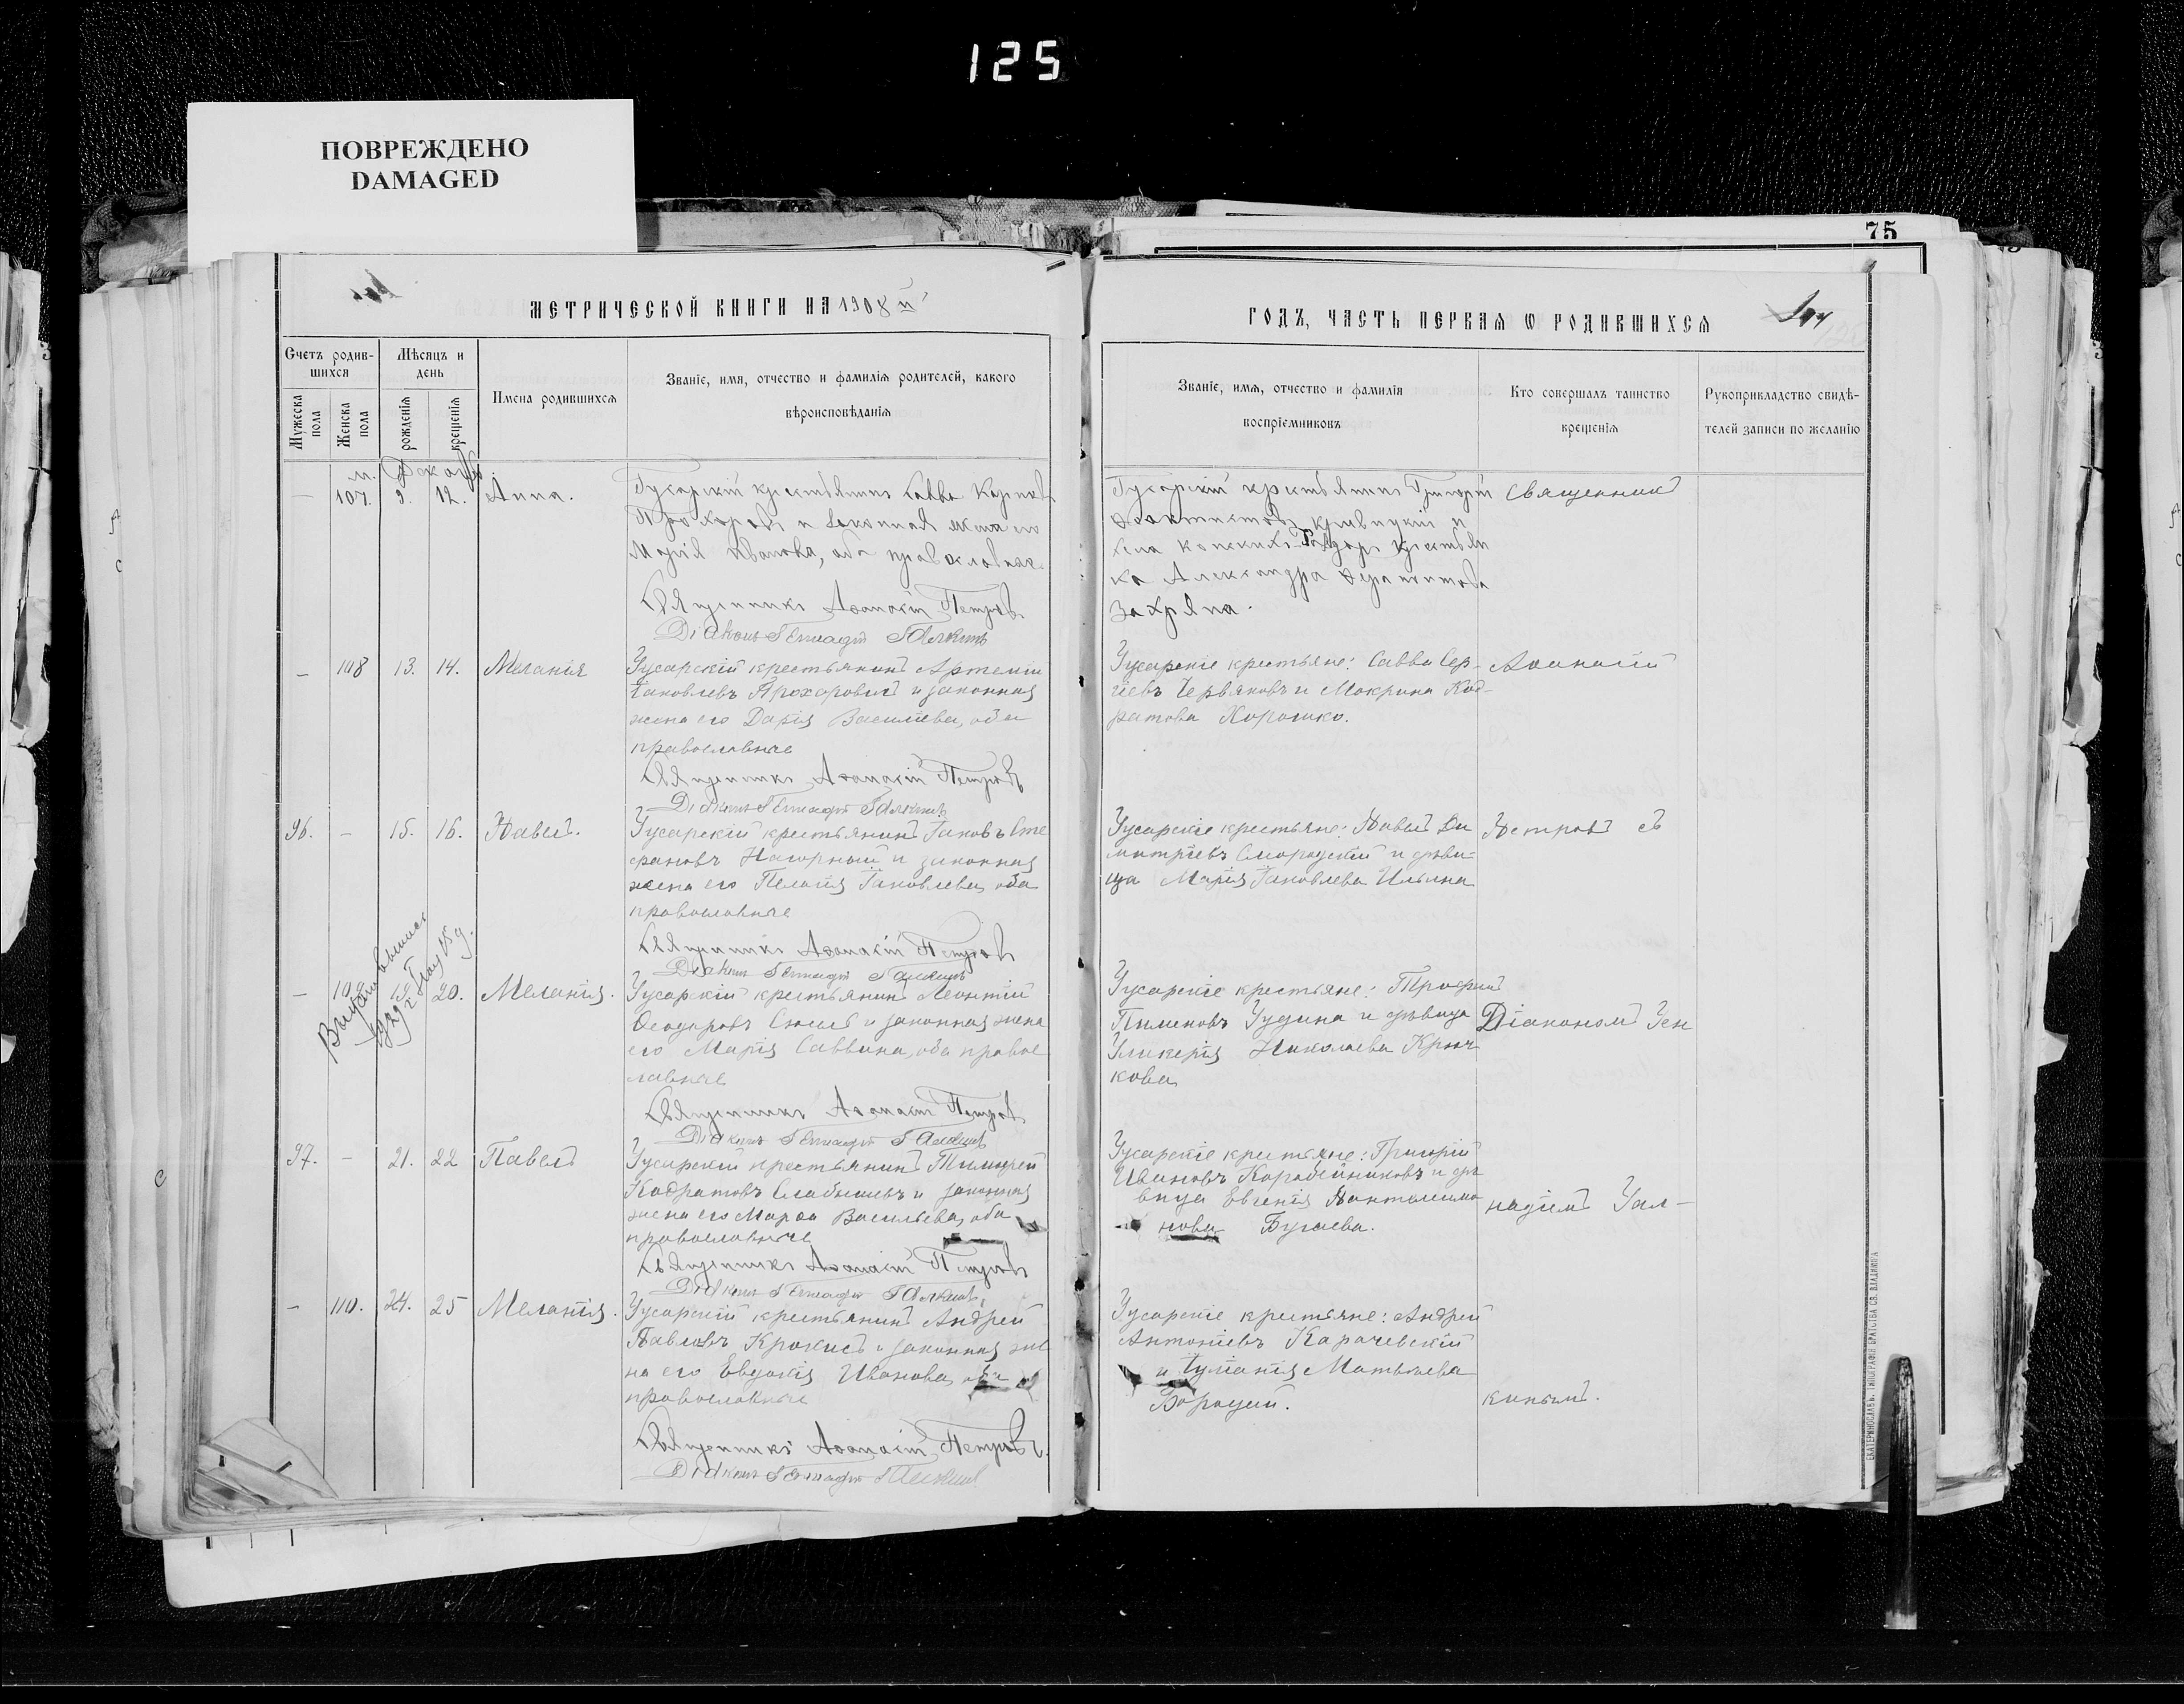 125
ПОВРЕЖДЕНО
DAMAGED
75
МЕТРИЧЕСКОЙ КНИГИ НА 1908 й
ГОДЪ, ЧАСТЬ ПЕРВАЯ Ѡ РОДИВШИХСЯ
Счетъ родив-
шихся
Мужеска пола
Женска пола
Мѣсяцъ и
день
рожденія
крещенія
Имена родившихся
Званіе, имя, отчество и фамилія родителей, какого
вѣроисповѣданія
Званіе, имя, отчество и фамилія
воспріемниковъ
Кто совершалъ таинство
крещенія
Рукоприкладство свидѣ-
телей записи по желанію
м. Декабрь.
— 107. 9. 12. Анна.
Гусарскій крестьянинъ Савва Карповъ
Прохоровъ и законная жена его
Марія Иванова, оба православные.
Священникъ Аѳанасій Петровъ
Діаконъ Геннадій Галкинъ
Гусарскій крестьянинъ Григорій
Ѳеоктистовъ Кривицкій и
села крестьян
ка Александра
Священникъ
— 108 13. 14. Меланія
Гусарскій крестьянинъ Артемій
Іаковлевъ Прохоровъ и законная
жена его Дарія Василіева, оба
православные
Священникъ Аѳанасій Петровъ
Діаконъ Геннадій Галкинъ
Гусарскіе крестьяне: Савва Сер-
гіевъ Червяковъ и Макрина Код-
ратова Хорошко.
Аѳанасій
96. — 15. 16. Павелъ.
Гусарскій крестьянинъ Іаковъ Сте
фановъ Нагорный и законная
жена его Пелагія Іаковлева, оба
православные
Священникъ Аѳанасій Петровъ
Діаконъ Геннадій Галкинъ
Гусарскіе крестьяне: Павелъ Ди
митріевъ Смородскій и дѣви-
ца Марія Іаковлева Ильина
Петровъ съ
— 20. Меланія.
Гусарскій крестьянинъ Леонтій
Ѳеодоровъ и законная жена
его Марія Саввина, оба правос
лавные
Священникъ Аѳанасій Петровъ
Діаконъ Геннадій Галкинъ
Гусарскіе крестьяне: Трофимъ
Пименовъ Гудина и дѣвица
Гликерія Николаева Крюч-
кова
Діакономъ Ген
97. — 21. 22 Павелъ
Гусарскій крестьянинъ Тимоѳей
Кодратовъ и законная
жена его Марѳа Васильева, оба
православные
Священникъ Аѳанасій Петровъ
Діаконъ Геннадій Галкинъ
Гусарскіе крестьяне: Григорій
Ивановъ Коробейниковъ и дѣ-
вица Евгенія Пантелеимо
нова Бугаева.
надіемъ Гал-
— 110. 24. 25 Меланія.
Гусарскій крестьянинъ Андрей
Павловъ и законная же
на его Евдокія Иванова, оба
православные
Священникъ Аѳанасій Петровъ.
Діаконъ Геннадій Галкинъ
Гусарскіе крестьяне: Андрей
Антоніевъ Карачевскій
и Іуліанія Матвѣева
Бородий.
кинымъ.
ЕКАТЕРИНОСЛАВЪ. ТИПОГРАФІЯ БРАТСТВА СВ. ВЛАДИМІРА